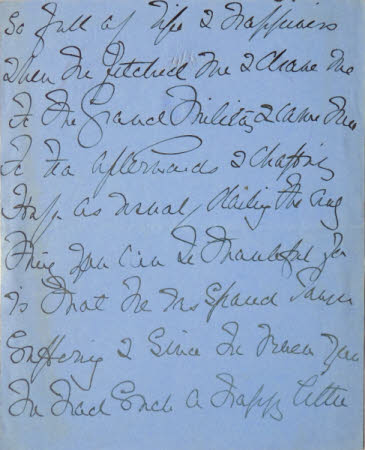 So full of life & happiness
when he fetched me & drove me
to the Grand Military & came here
to tea afterwards & chatting
as usual, the only
thing you can be thankful for
is that he was spared
suffering & since he knew you
he had such a happy little